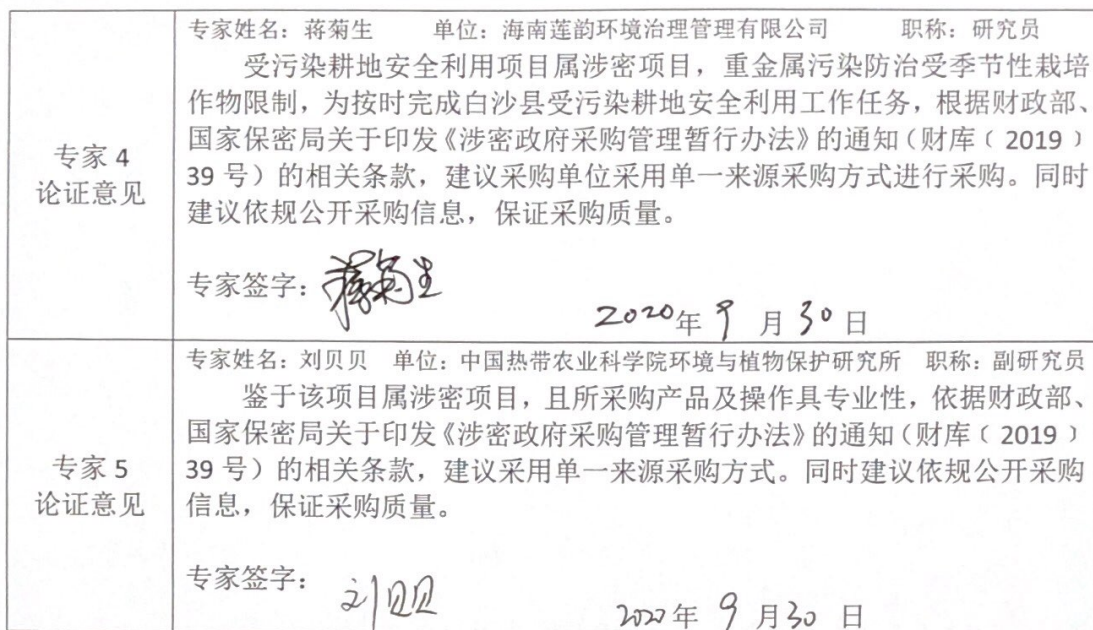 专家姓名：蒋菊生 单位：海南莲韵环境治理管理有限公司 职称：研究员
受污染耕地安全利用项目属涉密项目，重金属污染防治受季节性栽培
作物限制，为按时完成白沙县受污染耕地安全利用工作任务，根据财政部、
国家保密局关于印发《涉密政府采购管理暂行办法》的通知（财库﹝2019﹞
39号）的相关条款，建议采购单位采用单一来源采购方式进行采购。同时
建议依规公开采购信息，保证采购质量。
专家4
论证意见
专家签字：蒋菊生
2020年9月30日
专家姓名：刘贝贝 单位：中国热带农业科学院环境与植物保护研究所 职称：副研究员
鉴于该项目属涉密项目，且所采购产品及操作具专业性，依据财政部、
国家保密局关于印发《涉密政府采购管理暂行办法》的通知（财库﹝2019﹞
39号）的相关条款，建议采用单一来源采购方式。同时建议依规公开采购
信息，保证采购质量。
专家5
论证意见
专家签字：刘贝贝
2020年9月30日